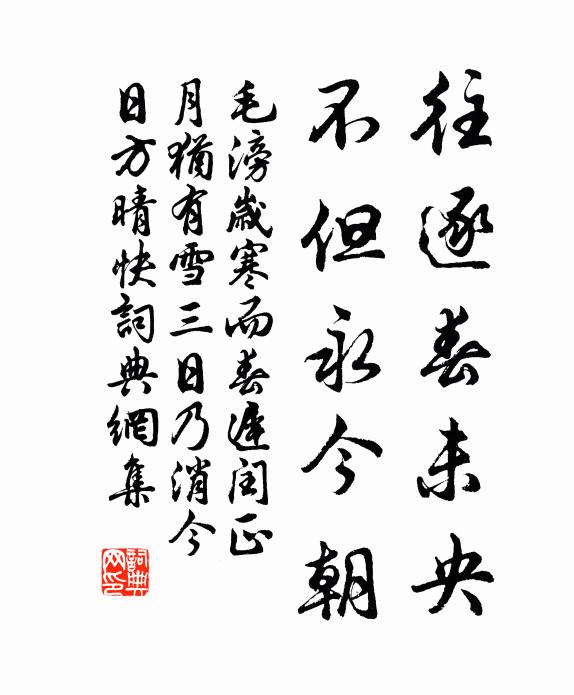 往逐春未央
不但永今朝
毛滂歲寒而春遲閏正
月猶有雪三日乃消今
日方晴快詞典網集
詞典
网印